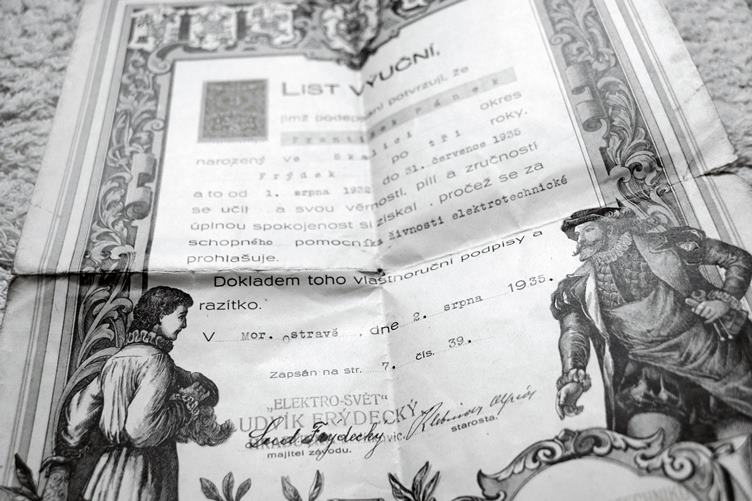 LIST VÝUČNÍ,
jímž podepsaní potvrzují, že
František Pánek
narozený ve Skalici okres
Frýdek po tři roky,
a to od 1. srpna 1932 do 31. července 1935
se učil a svou věrností, pílí a zručností
úplnou spokojenost si získal, pročež se za
schopného pomocníka živnosti elektrotechnické
prohlašuje.
Dokladem toho vlastnoruční podpisy a
razítko.
V Mor. Ostravě, dne 2. srpna 1935.
Zapsán na str. 7. čís. 39.
„ELEKTRO-SVĚT“
LUDVÍK FRÝDECKÝ
Lud. Frýdecký
majitel závodu.
starosta.